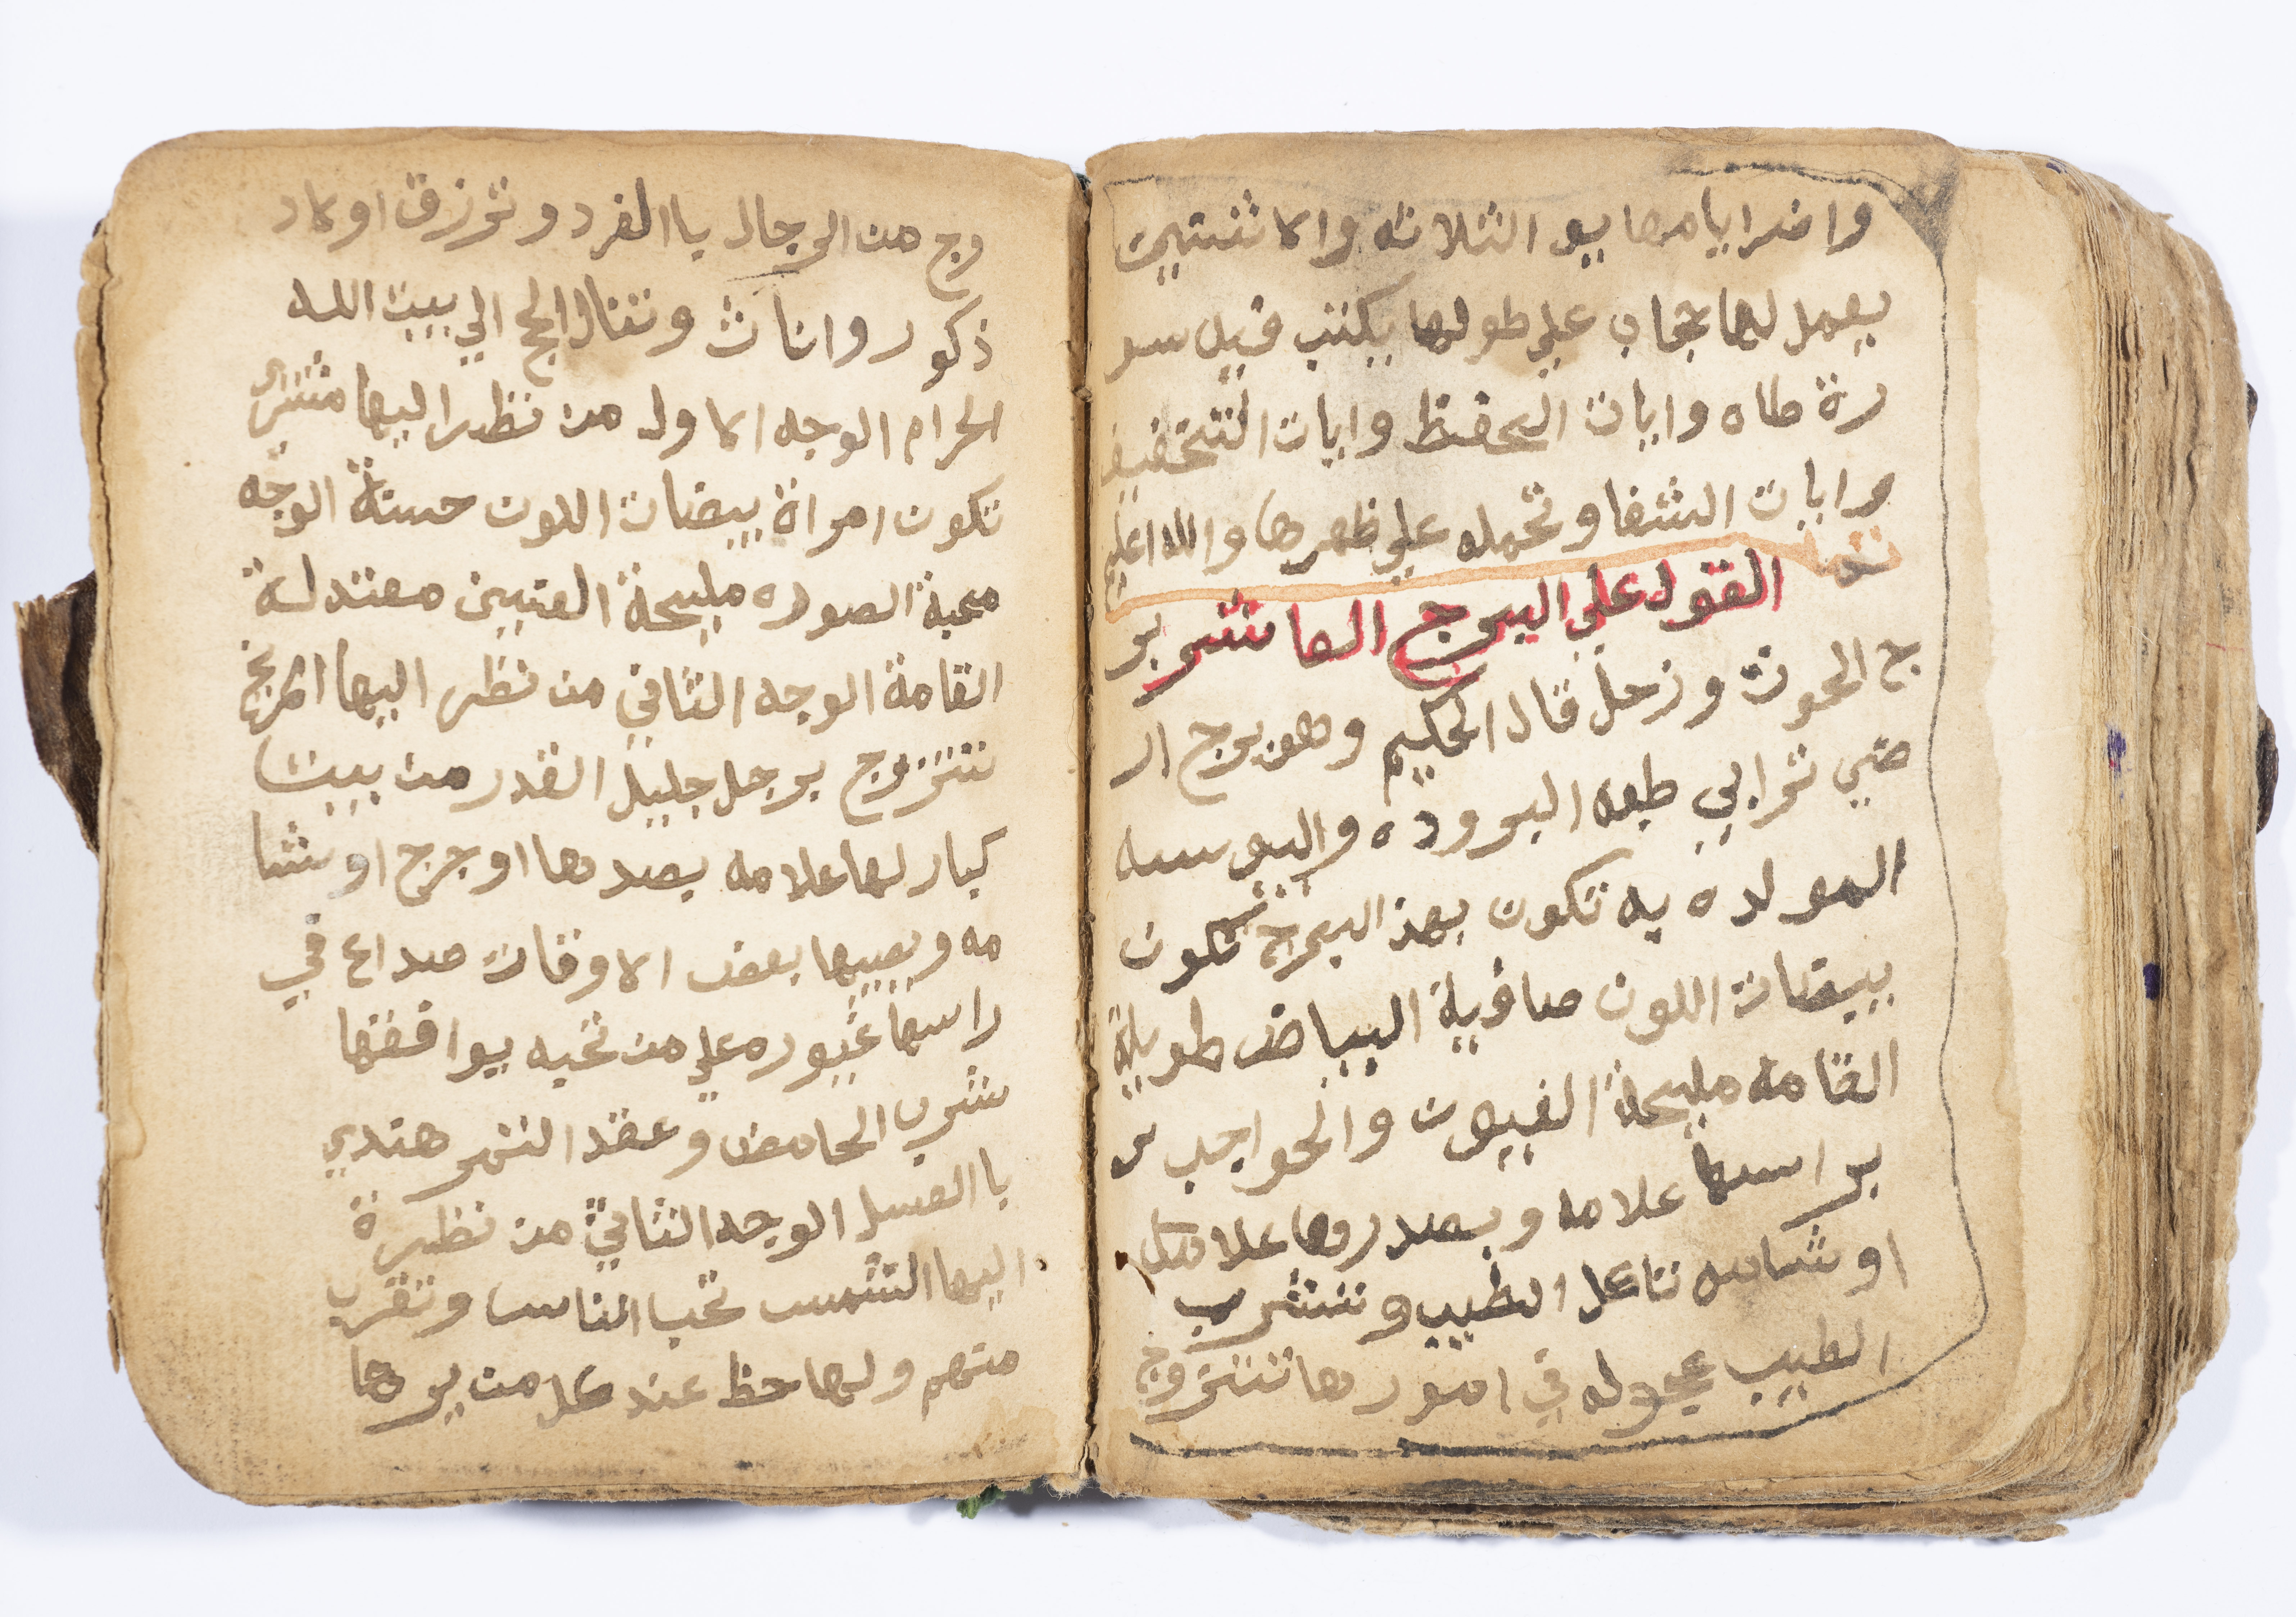 واضر ايامها يو الثلاثه والاثنتين
يعمل لها حجاب علي طولها يكتب فيه سو
رة طاه وايات الحفظ وايات التخفيف
وايات الشفا وتحمله علي ظهرها والله اعلم
القول علي البرج العاشر بر
ج الحوت وزحل قال الحكيم وهو برج ار
ضي ترابي طبعه البروده واليوسه
المولده به تكون بهذ البرج تكون
بيضات اللون صافية البياض طويلة
القامه مليحة العيون والحواجب
براسها علامه وبصدرها علا
او شامه تاكل الطيب وتشرب
الطيب عجوله في امورها تتزوج
وج من الرجال باالفرد وترزق اولاد
ذكور واناث وتنال الحج الي بيت الله
الحرام الوجه الاول من نظر اليها مشتري
تكون امراة بيضات اللون حسنة الوجه
محبة الصوره مليحة العنيين معتدلة
القامة الوجه الثاني من نظر اليها المريخ
تتزوج برجل جليل القدر من بيت
كبار لها علامه بصدرها او جرح او شا
مه ويصيبها بعض الاوقات صداع في
راسها غيوره علي من تحبه يوافقها
شرب الحامض وعقد التمر هندي
باالعسل الوجه الثاني من نظيرة
اليها الشمس تحب الناس وتقرب
منهم ولها حظ عند كل من يرها